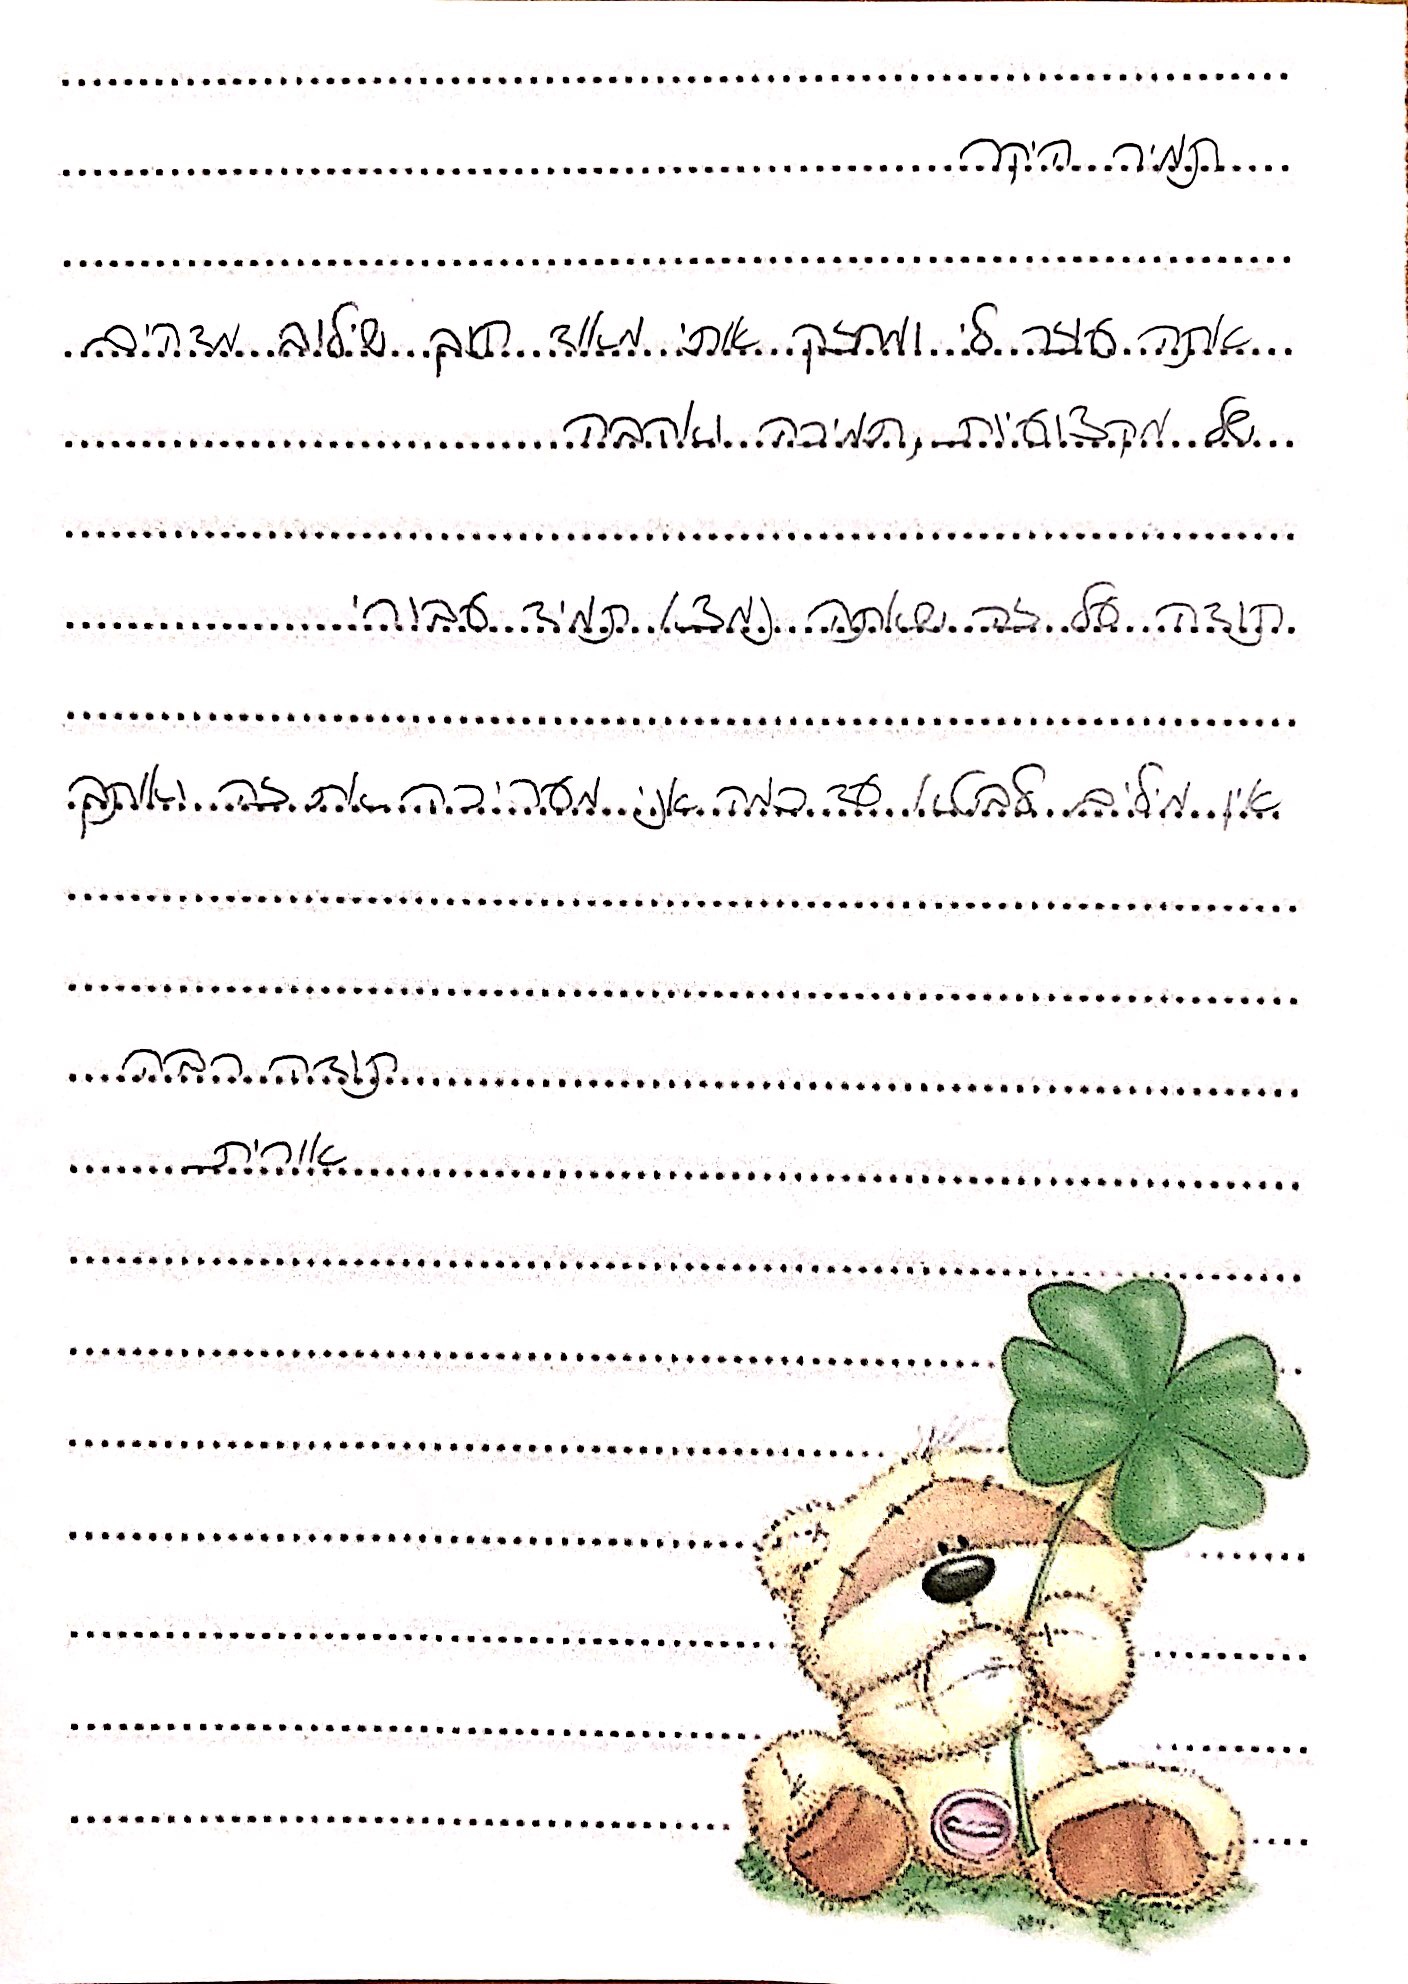 תמיר היקר
אתה עוזר לי ומחזק אותי מאוד תוך שילוב מדהים
של מקצועיות, תמיכה ואהבה
תודה על זה שאתה נמצא תמיד עבורי
אין מילים לבטא עד כמה אני מעריכה את זה ואותך
תודה רבה
אורית